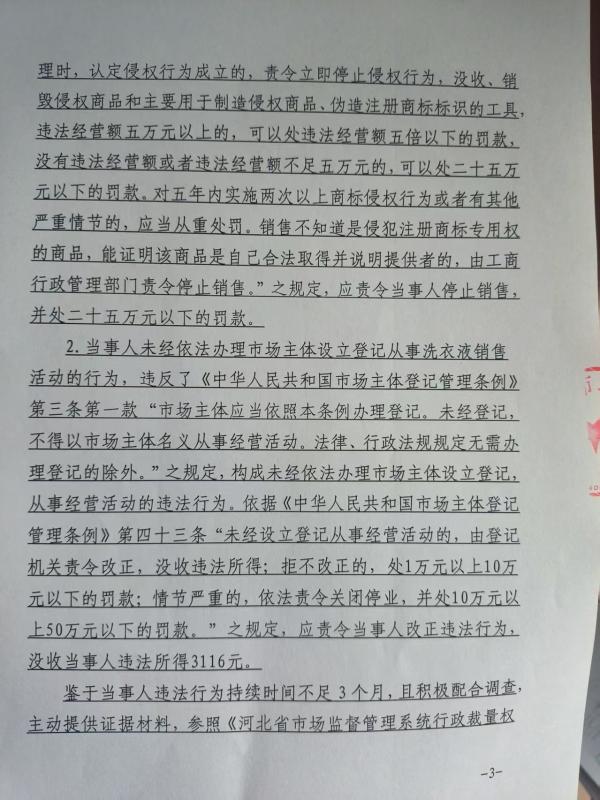 理时，认定侵权行为成立的，责令立即停止侵权行为，没收、销
毁侵权商品和主要用于制造侵权商品、伪造注册商标标识的工具，
违法经营额五万元以上的，可以处违法经营额五倍以下的罚款，
没有违法经营额或者违法经营额不足五万元的，可以处二十五万
元以下的罚款。对五年内实施两次以上商标侵权行为或者有其他
严重情节的，应当从重处罚。销售不知道是侵犯注册商标专用权
的商品，能证明该商品是自己合法取得并说明提供者的，由工商
行政管理部门责令停止销售。”之规定，应责令当事人停止销售，
并处二十五万元以下的罚款。
2.当事人未经依法办理市场主体设立登记从事洗衣液销售
活动的行为，违反了《中华人民共和国市场主体登记管理条例》
第三条第一款“市场主体应当依照本条例办理登记。未经登记，
不得以市场主体名义从事经营活动。法律、行政法规规定无需办
理登记的除外。”之规定，构成未经依法办理市场主体设立登记，
从事经营活动的违法行为。依据《中华人民共和国市场主体登记
管理条例》第四十三条“未经设立登记从事经营活动的，由登记
机关责令改正，没收违法所得；拒不改正的，处1万元以上10万
元以下的罚款；情节严重的，依法责令关闭停业，并处10万元以
上50万元以下的罚款。”之规定，应责令当事人改正违法行为，
没收当事人违法所得3116元。
鉴于当事人违法行为持续时间不足3个月，且积极配合调查，
主动提供证据材料，参照《河北省市场监督管理系统行政裁量权
-3-